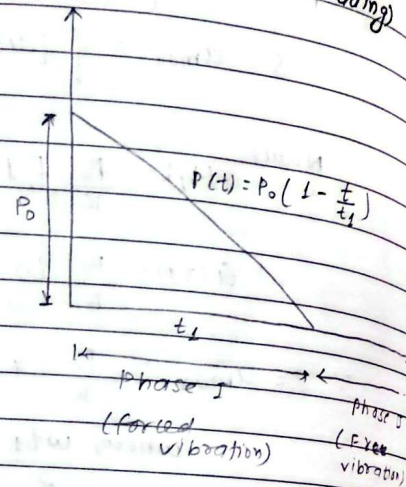 P(t) = P₀ ( 1 - t/t₁ )
P₀
t₁
Phase I
(forced
vibration)
Phase
(Free
vibration)